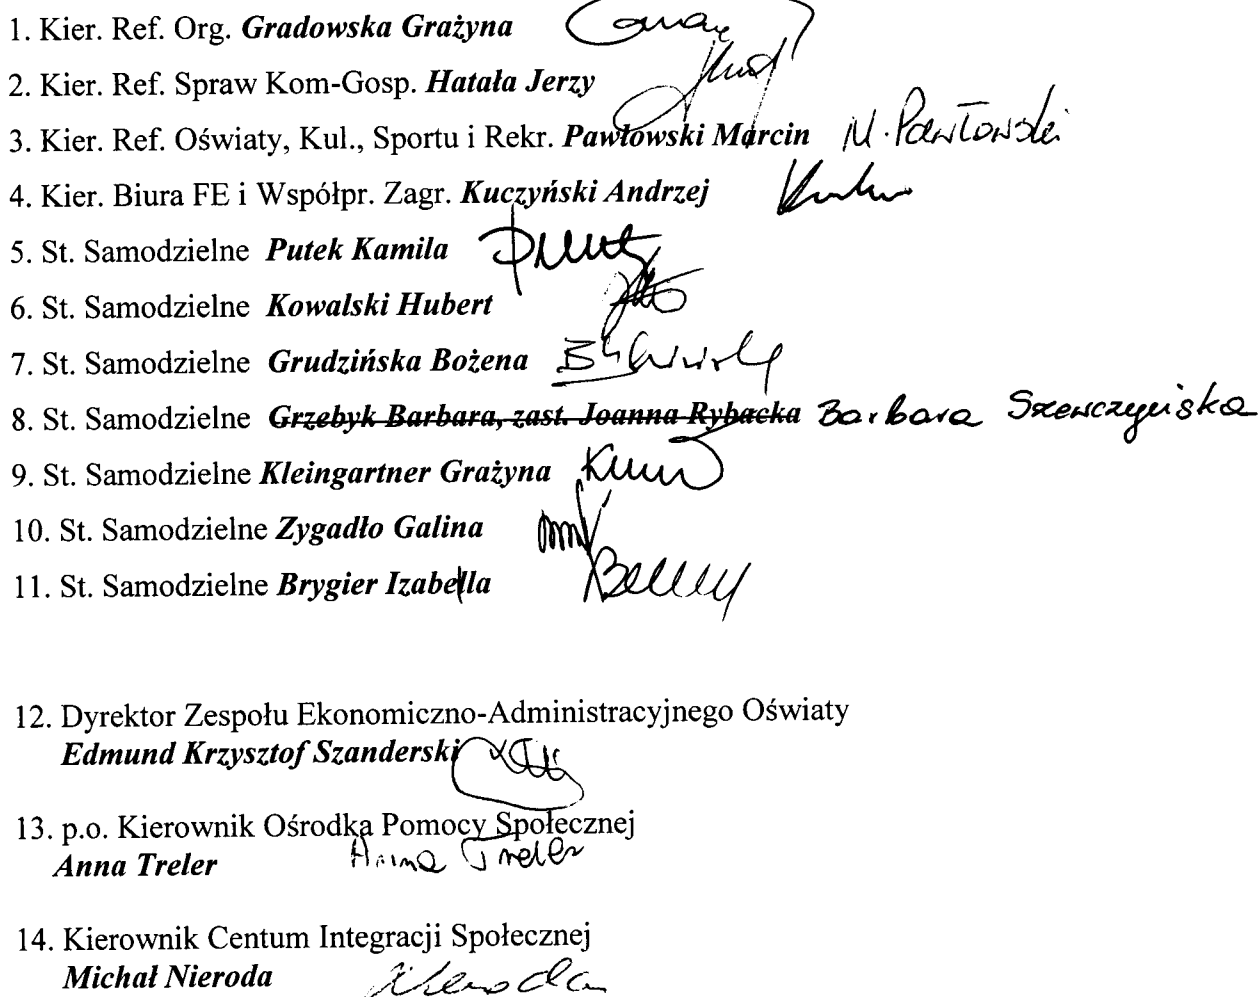 1. Kier. Ref. Org. Gradowska Grażyna
2. Kier. Ref. Spraw Kom-Gosp. Hatała Jerzy
3. Kier. Ref. Oświaty, Kul., Sportu i Rekr. Pawłowski Marcin M. Pawłowski
4. Kier. Biura FE i Współpr. Zagr. Kuczyński Andrzej
5. St. Samodzielne Putek Kamila
6. St. Samodzielne Kowalski Hubert
7. St. Samodzielne Grudzińska Bożena
8. St. Samodzielne Grzebyk Barbara, zast. Joanna Rybacka Barbara Szewczyńska
9. St. Samodzielne Kleingartner Grażyna
10. St. Samodzielne Zygadło Galina
11. St. Samodzielne Brygier Izabella
12. Dyrektor Zespołu Ekonomiczno-Administracyjnego Oświaty
Edmund Krzysztof Szanderski
13. p.o. Kierownik Ośrodka Pomocy Społecznej
Anna Treler Anna Treler
14. Kierownik Centum Integracji Społecznej
Michał Nieroda Nieroda